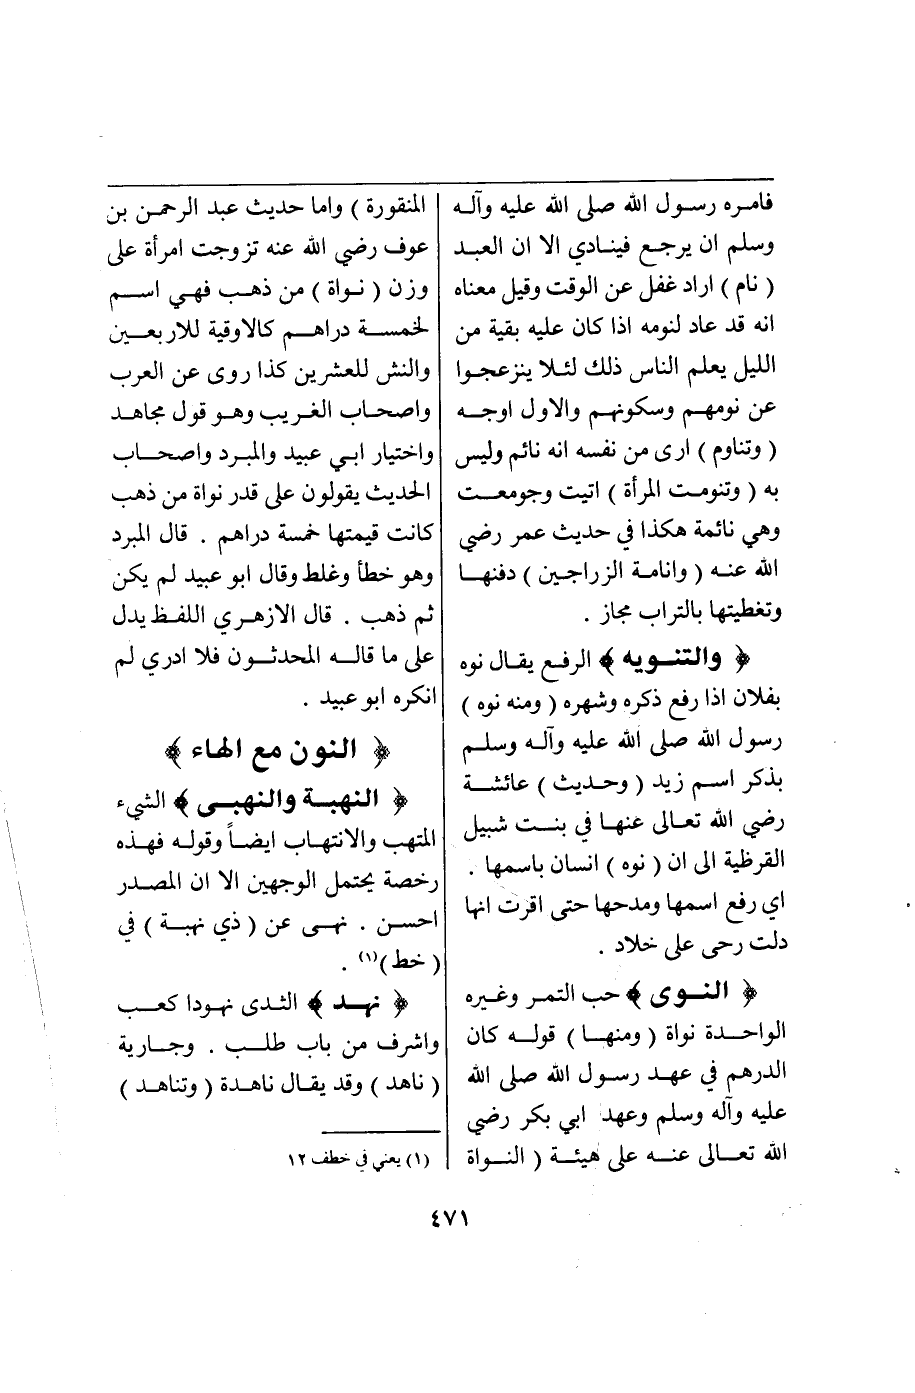 فامره رسول الله صلى الله عليه وآله
وسلم ان يرجع فينادي الا ان العبد
( نام ) اراد غفل عن الوقت وقيل معناه
انه قد عاد لنومه اذا كان عليه بقية من
الليل يعلم الناس ذلك لئلا ينزعجوا
عن نومهم وسكونهم والاول اوجه
( وتناوم ) ارى من نفسه انه نائم وليس
به ( وتنومت المرأة ) اتيت وجومعت
وهي نائمة هكذا في حديث عمر رضي
الله عنه ( وانامة الزراجين ) دفنها
وتغطيتها بالتراب مجاز .
﴿ والتنويه ﴾ الرفع يقال نوه
بفلان اذا رفع ذكره وشهره ( ومنه نوه )
رسول الله صلى الله عليه وآله وسلم
بذكر اسم زيد ( وحديث ) عائشة
رضي الله تعالى عنها في بنت شبيل
القرظية الى ان ( نوه ) انسان باسمها .
اي رفع اسمها ومدحها حتى اقرت انها
دلت رحى على خلاد .
﴿ النوى ﴾ حب التمر وغيره
الواحدة نواة ( ومنها ) قوله كان
الدرهم في عهد رسول الله صلى الله
عليه وآله وسلم وعهد ابي بكر رضي
الله تعالى عنه على هيئة ( النواة
المنقورة ) واما حديث عبد الرحمن بن
عوف رضي الله عنه تزوجت امرأة على
وزن ( نواة ) من ذهب فهي اسم
لخمسة دراهم كالاوقية للاربعين
والنش للعشرين كذا روى عن العرب
واصحاب الغريب وهو قول مجاهد
واختيار ابي عبيد والمبرد واصحاب
الحديث يقولون على قدر نواة من ذهب
كانت قيمتها خمسة دراهم . قال المبرد
وهو خطأ وغلط وقال ابو عبيد لم يكن
ثم ذهب . قال الازهري اللفظ يدل
على ما قاله المحدثون فلا ادري لم
انكره ابو عبيد .
﴿ النون مع الهاء ﴾
﴿ النهبة والنهبى ﴾ الشيء
المنتهب والانتهاب ايضاً وقوله فهذه
رخصة يحتمل الوجهين الا ان المصدر
احسن . نهى عن ( ذي نهبة ) في
( خط )(١) .
﴿ نهد ﴾ الثدى نهودا كعب
واشرف من باب طلب . وجارية
( ناهد ) وقد يقال ناهدة ( وتناهد )
(١) يعني في خطف ١٢
٤٧١